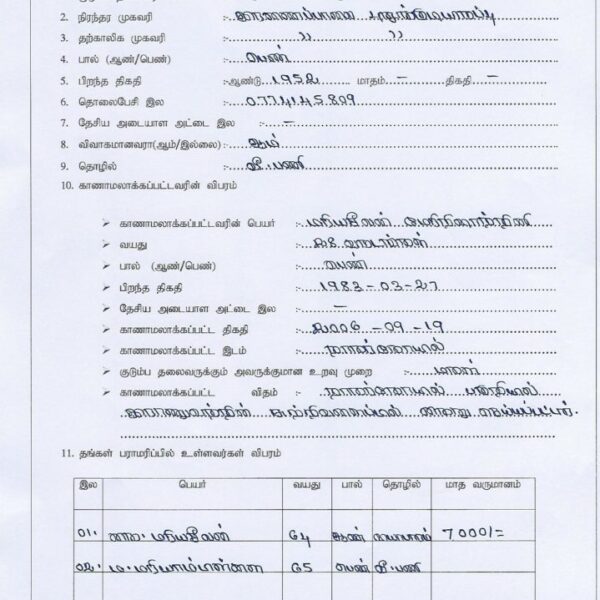 2. நிரந்தர முகவரி :-
3. தற்காலிக முகவரி :- ,, ,,
4. பால் (ஆண்/பெண்) :- பெண்
5. பிறந்த திகதி :-ஆண்டு 1952 மாதம் – திகதி –
6. தொலைபேசி இல :- 0774145809
7. தேசிய அடையாள அட்டை இல :- –
8. விவாகமானவரா(ஆம்/இல்லை):- ஆம்
9. தொழில் :- வீ.பணி
10. காணாமலாக்கப்பட்டவரின் விபரம்
➤ காணாமலாக்கப்பட்டவரின் பெயர் :- மரியசீலன்
➤ வயது :-
➤ பால் (ஆண்/பெண்) :- பெண்
➤ பிறந்த திகதி :- 1983-03-27
➤ தேசிய அடையாள அட்டை இல :- –
➤ காணாமலாக்கப்பட்ட திகதி :- 2006-09-19
➤ காணாமலாக்கப்பட்ட இடம் :-
➤ குடும்ப தலைவருக்கும் அவருக்குமான உறவு முறை :- மகள்
➤ காணாமலாக்கப்பட்ட விதம் :-
இராணுவத்தின் சுற்றிவளைப்பில் கைது செய்யப்பட்டார்.
11. தங்கள் பராமரிப்பில் உள்ளவர்கள் விபரம்
இல பெயர் வயது பால் தொழில் மாத வருமானம்
01. மரியசீலன் 64 ஆண் 7000/=
02. ம. மரியம்மன்னை 65 பெண் வீ.பணி